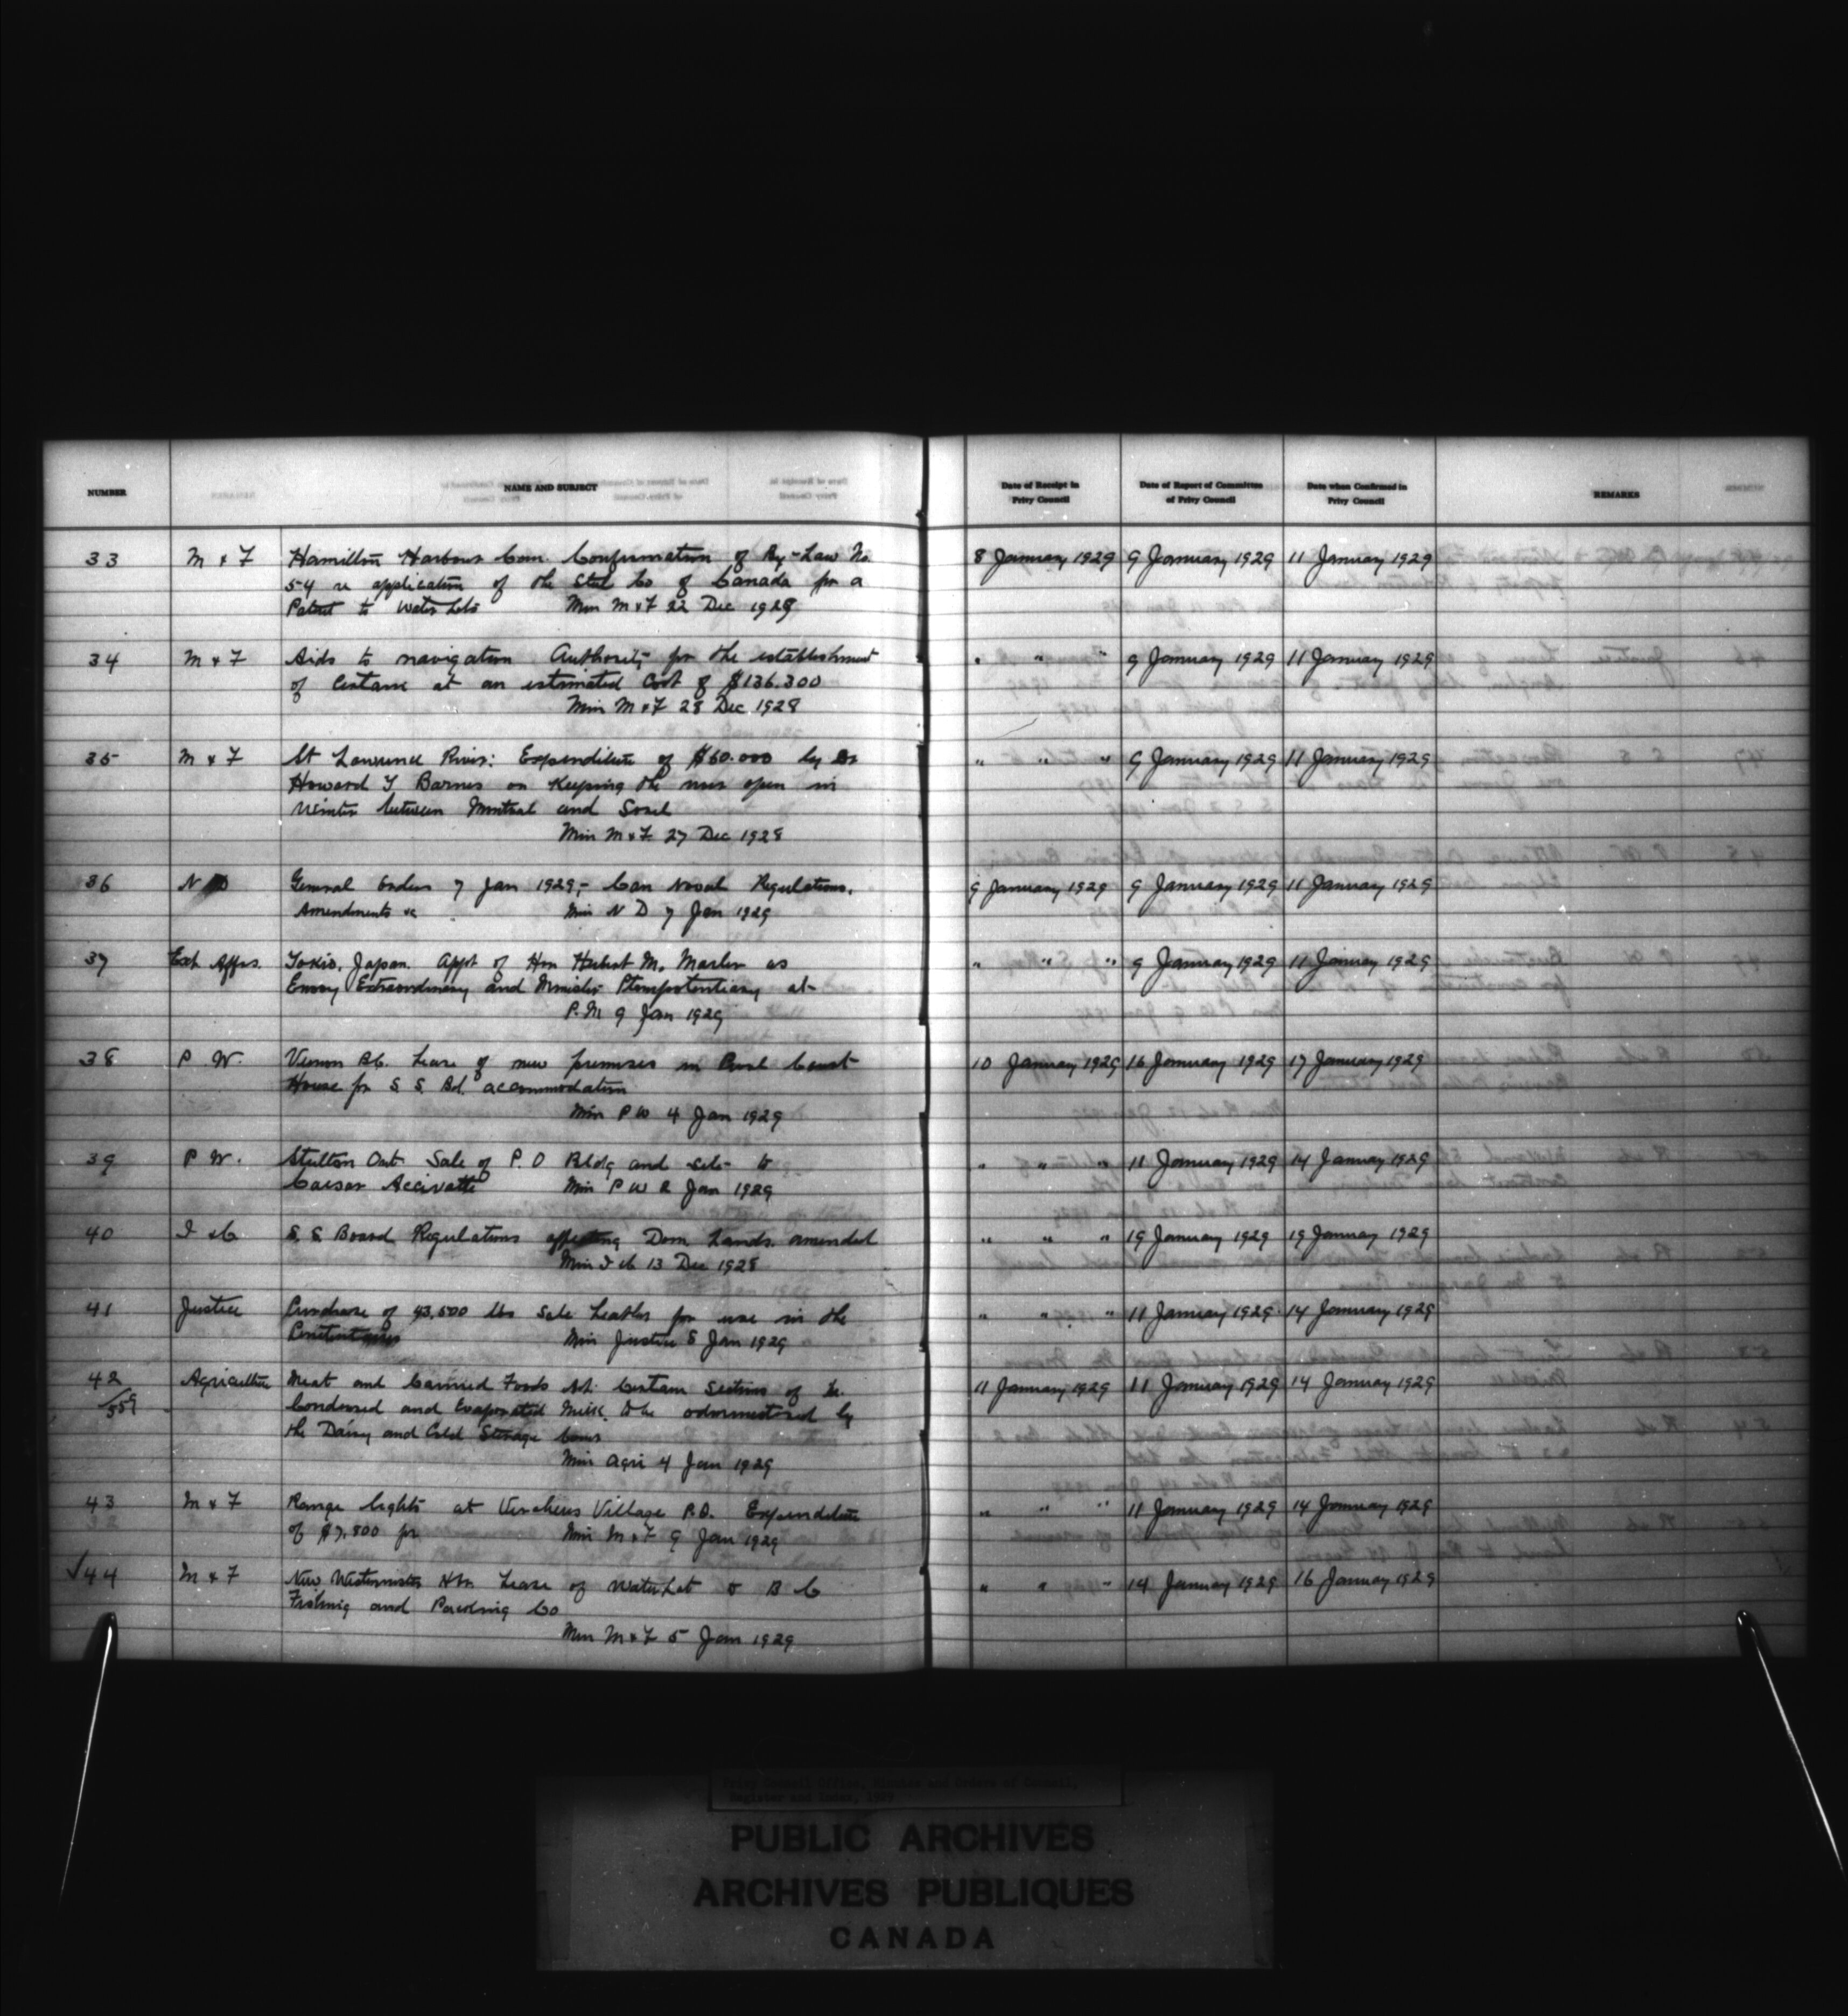 NUMBER NAME AND SUBJECT Date of Receipt in Privy Council Date of Report of Committee of Privy Council Date when Confirmed in Privy Council REMARKS
33 M & F Hamilton Harbour Com. Confirmation of By-Law No. 8 January 1929 9 January 1929 11 January 1929
54 re application of the Steel Co of Canada for a
Patent to Water Lots Min M & F 22 Dec 1928
34 M & F Aids to navigation Authority for the establishment " " " 9 January 1929 11 January 1929
of certain at an estimated cost of $136.300
Min M & F 28 Dec 1928
35 M & F St Lawrence River: Expenditure of $60.000 by Dr " " " 9 January 1929 11 January 1929
Howard T Barnes on keeping the river open in
Winter between Montreal and Sorel
Min M & F 27 Dec 1928
36 N D General Orders 7 Jan 1929,- Can Naval Regulations. 9 January 1929 9 January 1929 11 January 1929
Amendments &c Min N D 7 Jan 1929
37 Ext Affrs. Tokio, Japan. Appt of Hon Herbert M. Marler as " " " 9 January 1929 11 January 1929
Envoy Extraordinary and Minister Plenipotentiary at
P.M 9 Jan 1929
38 P. W. Vernon B.C. Lease of new premises in Court 10 January 1929 16 January 1929 17 January 1929
House for S. S. Bd. accommodation
Min P W 4 Jan 1929
39 P W. Ont Sale of P. O Bldg and site to " " " 11 January 1929 14 January 1929
Caesar Min P W 2 Jan 1929
40 I & C S. S. Board Regulations affecting Dom Lands. amended " " " 19 January 1929 19 January 1929
Min I & C 13 Dec 1928
41 Justice Purchase of 43,500 lbs Sole Leather for use in the " " " 11 January 1929 14 January 1929
Penitentiaries Min Justice 8 Jan 1929
42 /559 Agriculture Meat and Canned Foods Act. Certain Sections of re. 11 January 1929 11 January 1929 14 January 1929
Condensed and Evaporated Milk. to be administered by
the Dairy and Cold Storage Comr
Min Agri 4 Jan 1929
43 M & F Range Lights at Verchères Village P.Q. Expenditure " " " 11 January 1929 14 January 1929
of $7,800 for Min M & F 9 Jan 1929
√44 M & F New Westminster Hbr. Lease of Water Lot to B C " " " 14 January 1929 16 January 1929
Fishing and Packing Co
Min M & F 5 Jan 1929
Privy Council Office, Minutes and Orders of Council,
Register and Index, 1929
PUBLIC ARCHIVES
ARCHIVES PUBLIQUES
CANADA